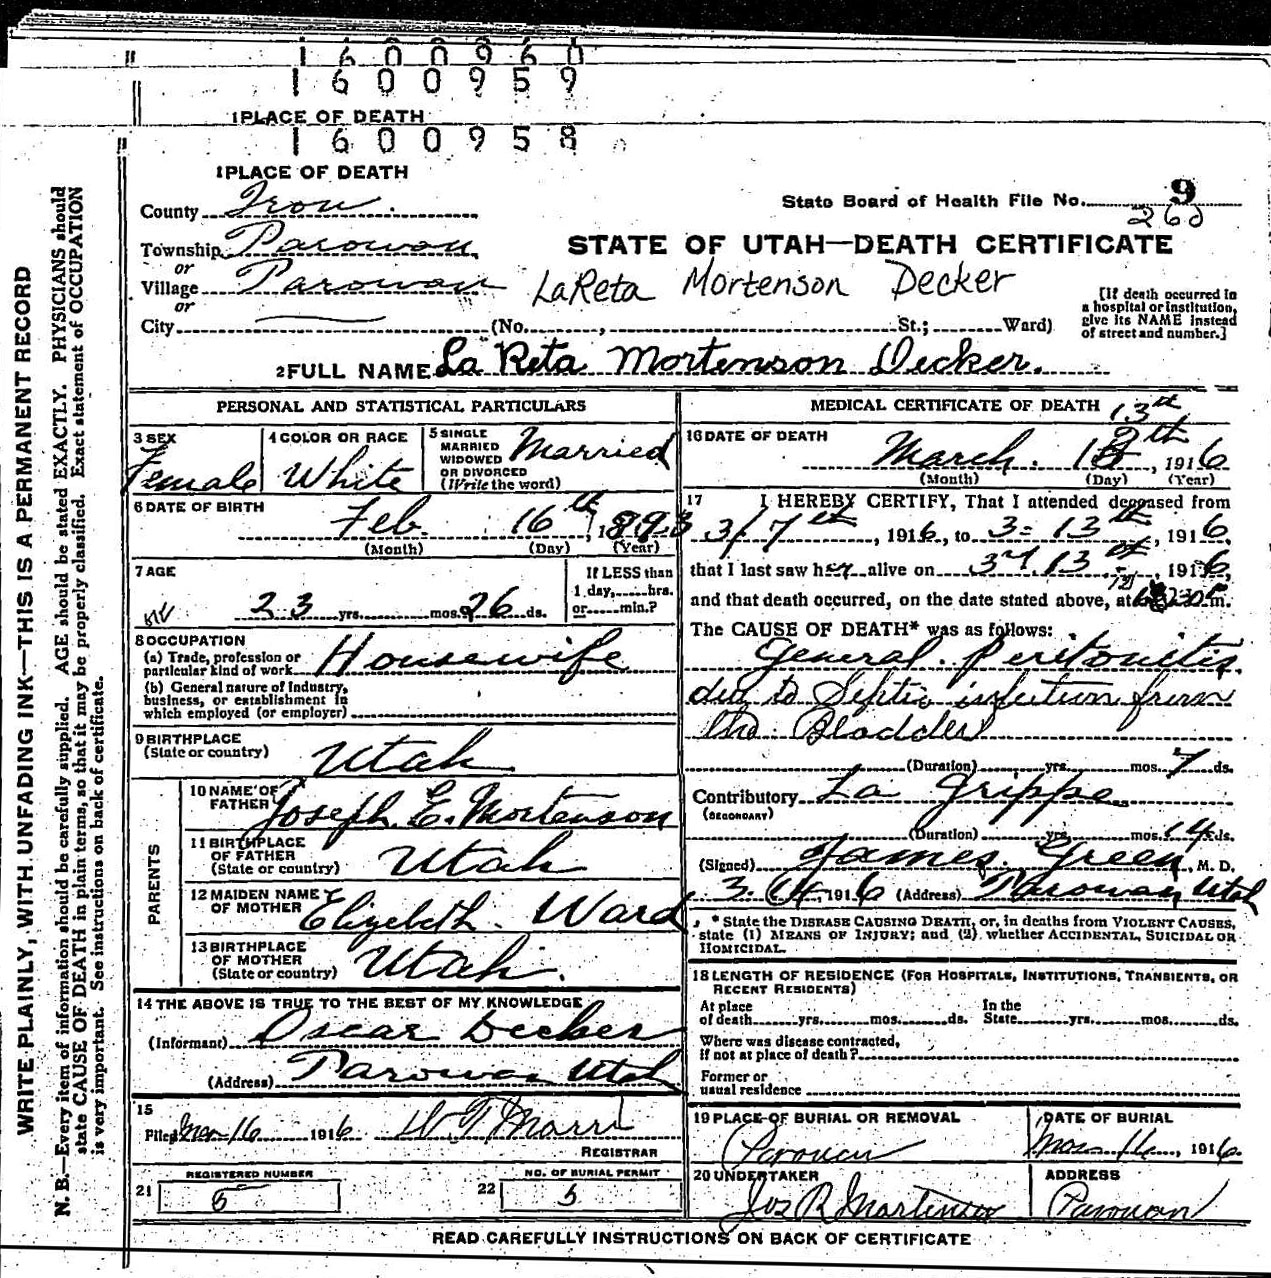 1600960
1600959
1 PLACE OF DEATH
1600958
1 PLACE OF DEATH
County Iron
State Board of Health File No. 9
260
Township Parowan
or
Village Parowan
or
City (No. , St.; Ward)
STATE OF UTAH—DEATH CERTIFICATE
LaReta Mortenson Decker
[If death occurred in
a hospital or institution,
give its NAME instead
of street and number.]
2 FULL NAME La Reta Mortenson Decker.
PERSONAL AND STATISTICAL PARTICULARS
3 SEX
Female
4 COLOR OR RACE
White
5 SINGLE
MARRIED
WIDOWED
OR DIVORCED
(Write the word)
Married
6 DATE OF BIRTH
Feb. 16th, 1893
(Month) (Day) (Year)
7 AGE
23 yrs. mos. 26 ds.
If LESS than
1 day, hrs.
or min.?
8 OCCUPATION
(a) Trade, profession or
particular kind of work Housewife
(b) General nature of Industry,
business, or establishment in
which employed (or employer)
9 BIRTHPLACE
(State or country) Utah
PARENTS
10 NAME OF
FATHER Joseph. E. Mortenson
11 BIRTHPLACE
OF FATHER
(State or country) Utah
12 MAIDEN NAME
OF MOTHER Elizebeth. Ward
13 BIRTHPLACE
OF MOTHER
(State or country) Utah.
14 THE ABOVE IS TRUE TO THE BEST OF MY KNOWLEDGE
(Informant) Oscar Decker
(Address) Parowan Utah
15
Filed Mar 16 1916
REGISTRAR
REGISTERED NUMBER
21 5
NO. OF BURIAL PERMIT
22 5
MEDICAL CERTIFICATE OF DEATH
13th
16 DATE OF DEATH
March. , 1916
(Month) (Day) (Year)
17 I HEREBY CERTIFY, That I attended deceased from
3/7th, 1916, to 3-13th, 1916,
that I last saw her alive on 13 , 1916,
and that death occurred, on the date stated above, at m.
The CAUSE OF DEATH* was as follows:
General. Peritonitis.
due to Septic infection from
the Bladder
(Duration) yrs. mos. 7 ds.
Contributory La Grippe
(SECONDARY)
(Duration) yrs. mos. 14 ds.
(Signed) James Green, M. D.
3. 14, 1916 (Address) Parowan, Utah
* State the DISEASE CAUSING DEATH, or, in deaths from VIOLENT CAUSES,
state (1) MEANS OF INJURY; and (2) whether ACCIDENTAL, SUICIDAL OR
HOMICIDAL.
18 LENGTH OF RESIDENCE (FOR HOSPITALS, INSTITUTIONS, TRANSIENTS, OR
RECENT RESIDENTS)
At place In the
of death yrs. mos. ds. State yrs. mos. ds.
Where was disease contracted,
if not at place of death?
Former or
usual residence
19 PLACE OF BURIAL OR REMOVAL
Parowan
DATE OF BURIAL
Mar 16, 1916.
20 UNDERTAKER
Jos R Martenson
ADDRESS
Parowan
READ CAREFULLY INSTRUCTIONS ON BACK OF CERTIFICATE
WRITE PLAINLY, WITH UNFADING INK—THIS IS A PERMANENT RECORD
N. B.—Every item of information should be carefully supplied. AGE should be stated EXACTLY. PHYSICIANS should
state CAUSE OF DEATH in plain terms, so that it may be properly classified. Exact statement of OCCUPATION
is very important. See instructions on back of certificate.